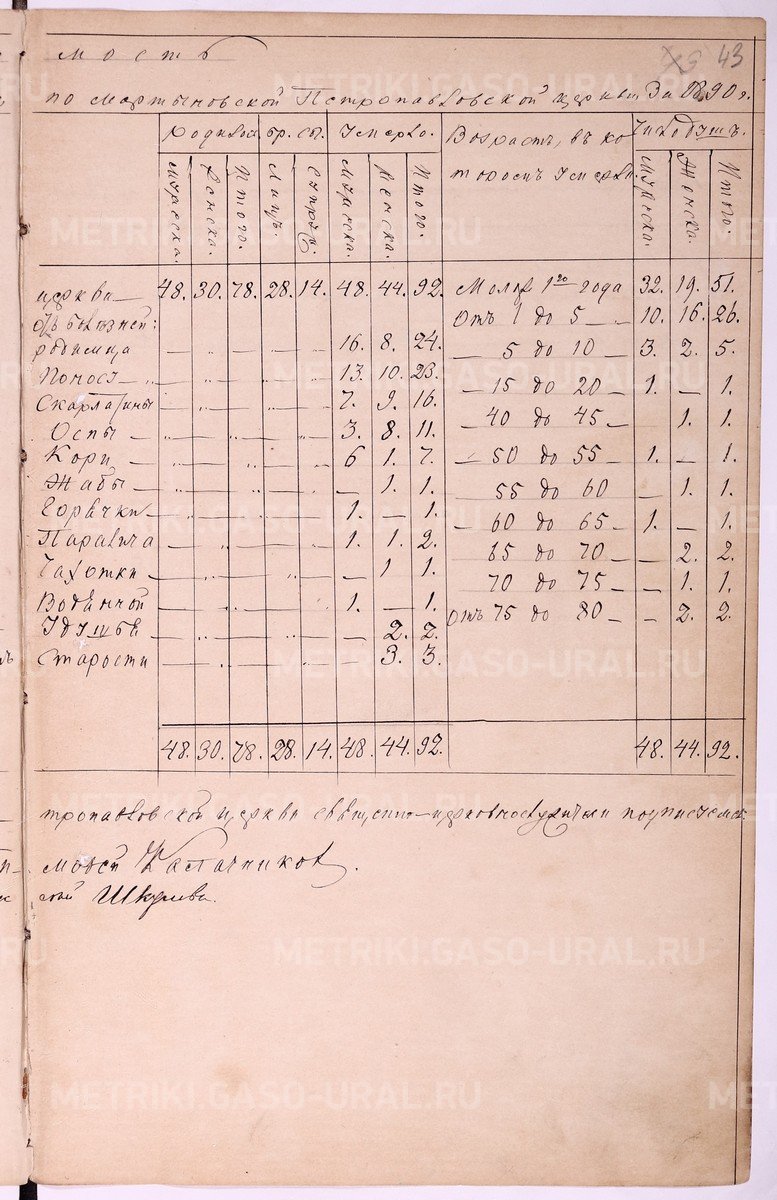 мость 43
по Мартыновской Петропавловской церкви За 1890 г.
Родивш. бр. соч. Умерло. Возрастъ, въ ко Число душъ.
торомъ умерли.
Мужеска. Женска. Итого. Лицъ. Супруж. Мужеска. Женска. Итого. Мужеска. Женска. Итого.
церкви — 48. 30. 78. 28. 14. 48. 44. 92. Молож 1го года 32. 19. 51.
Отъ болѣзней: Отъ 1 до 5 — 10. 16. 26.
родимца — — — — — 16. 8. 24. — 5 до 10 — 3. 2. 5.
Поноса — — — — — 13. 10. 23. — 15 до 20 — 1. — 1.
Скарлатины — — — — — 7. 9. 16. — 40 до 45 — 1. 1.
Оспы — — — — — 3. 8. 11. — 50 до 55 — 1. — 1.
Кори — — — — — 6 1. 7. 55 до 60 — 1. 1.
Жабы — — — — — — 1. 1. — 60 до 65 — 1. — 1.
Горячки — — — — — 1. — 1. 65 до 70 — — 2. 2.
Паралича — — — — — 1. 1. 2. 70 до 75 — — 1. 1.
Чахотки — — — — — — 1 1. Отъ 75 до 80 — — 2. 2.
Водяной — — — — — 1. — 1.
Удушья — — — — — — 2. 2.
Старости — — — — — — 3. 3.
48. 30. 78. 28. 14. 48. 44. 92. 48. 44. 92.
тропавловской церкви священно-церковнослужители подписуемся
Калачников.
METRIKI.GASO-URAL.RU